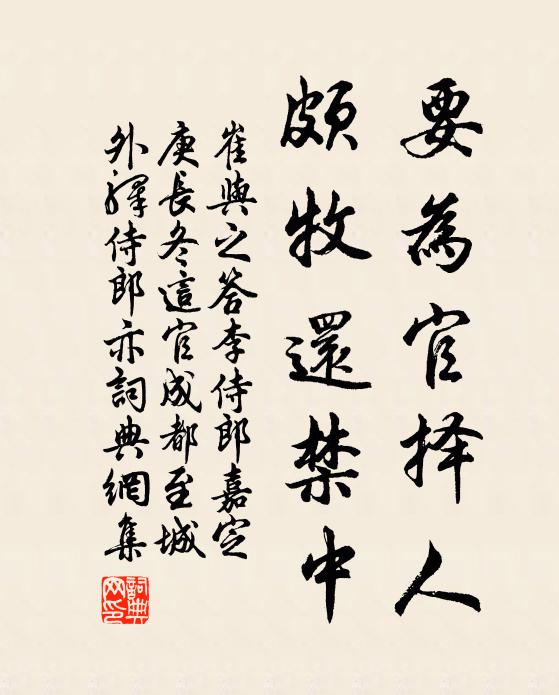 要為官择人
頗牧還禁中
崔與之答李侍郎嘉定
庚長冬這官成都至城
外驛侍郎亦詞典網集
詞典網印